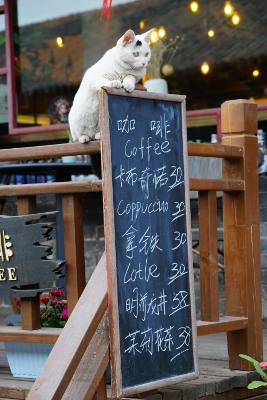 咖 啡
Coffee
卡布奇诺 30
Cappuccino
拿铁 30
Latte 30
明前龙井 58
茉莉花茶 38
啡
EE